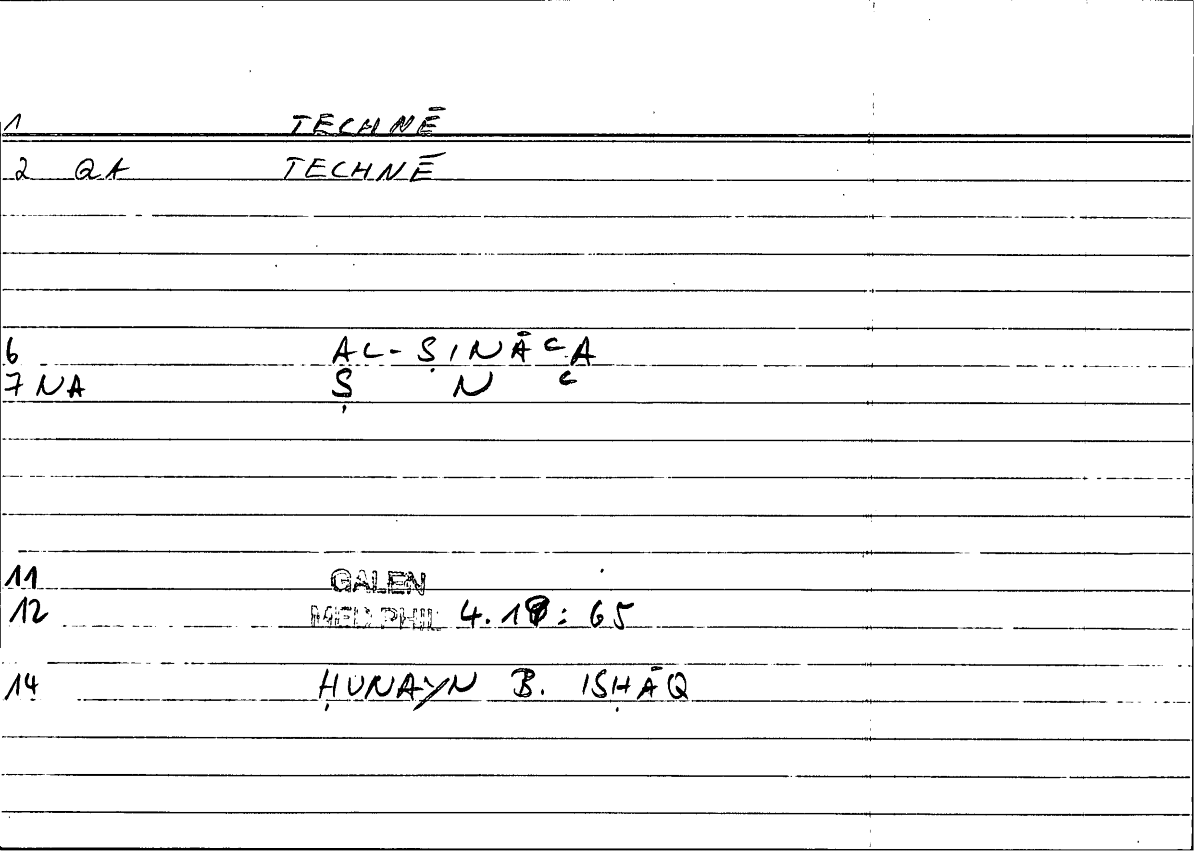 1 TECHNĒ
2 QA TECHNĒ
6 AL-ṢINĀʿA
7 NA Ṣ N ʿ
11 GALEN
12 MED. PHIL 4. : 65
14 ḤUNAYN B. ISḤĀQ